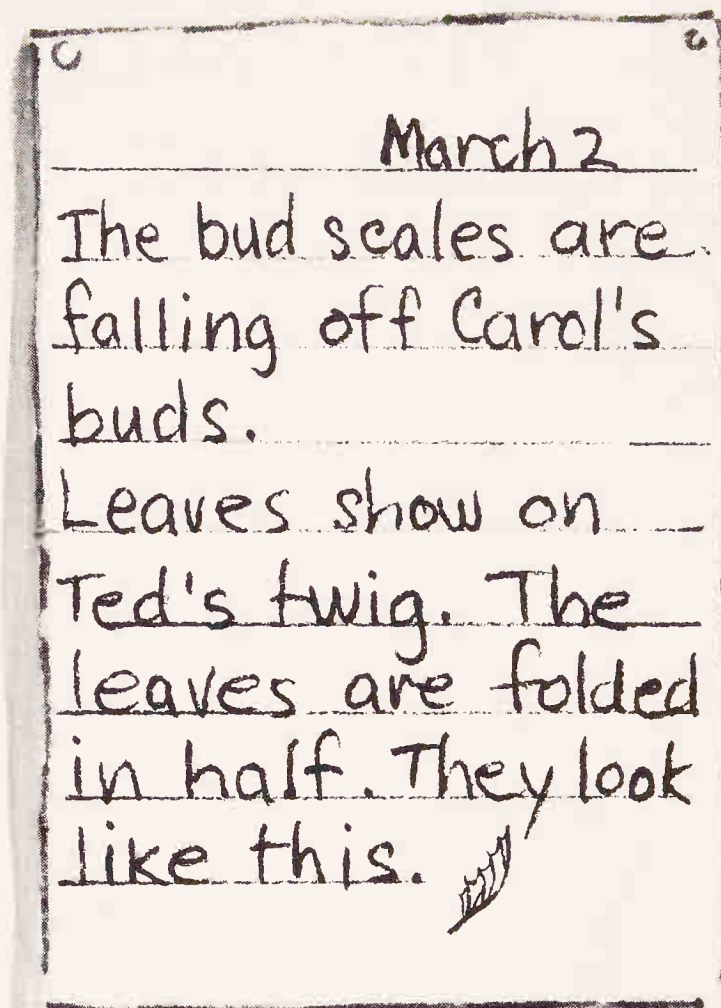 March 2
The bud scales are
falling off Carol's
buds.
Leaves show on
Ted's twig. The
leaves are folded
in half. They look
like this.